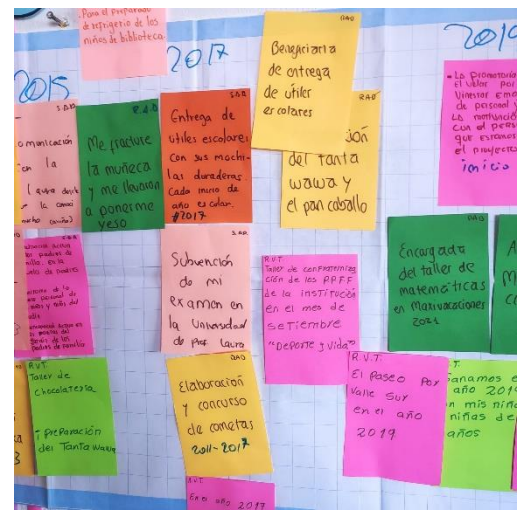 Para el preparado
de refrigerio de los
niños de biblioteca
2015
2017
S.A.B
omunicación
la
R.A.O
Me fracture
la muñeca
y me llevaron
a ponerme
yeso
S.A.B
Entrega de
utiles escolares
con sus mochi-
las duraderas
Cada inicio de
año escolar.
#2017
DAO
Beneficiaria
de entrega
de utiles
escolares
RAO
ión
del Tanta
wawa y
el pan caballo
La promotoria
el valor por
de personal y
La motivación
con el pers
que estamos
el proyecto
inicio
S.A.B
Subvención
de mi
examen en
la Universidad
de Prof. Lauro
R.V.T.
Taller de confraterniza
ción de los PPFF
de la institución
en el mes de
seTiembre
"Deporte y Vida"
DAO
Encargada
del taller de
matemáticas
en Maxivacaciones
2021
R.V.T
Taller de
chocolateria
preparación
del Tanta wawa
DAO
Elaboración
y concurso
de cometas
2011-2017
R.V.T.
El Paseo Por
Valle Sur
en el año
2019
T.
anamos e
año 201
n mis niño
niñas de
años
R.V.T.
En el año 2017